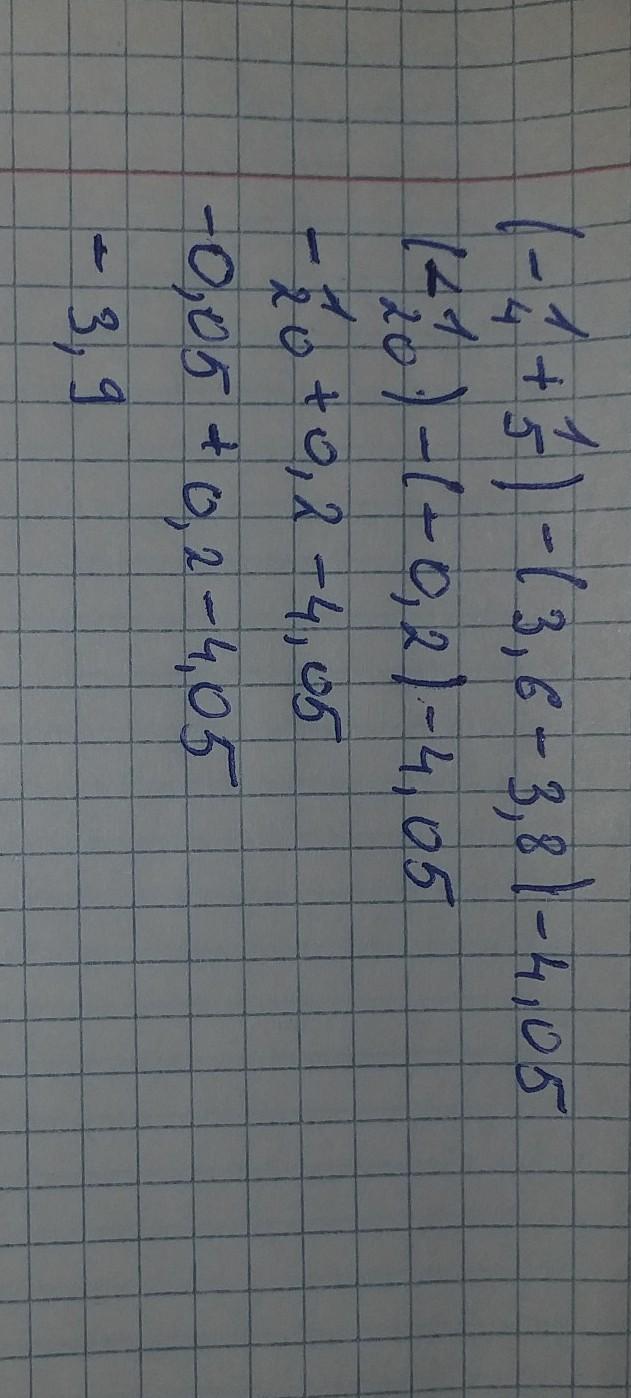 (-1/4 + 1/5) - (3,6 - 3,8) - 4,05
(-1/20) - (-0,2) - 4,05
-1/20 + 0,2 - 4,05
-0,05 + 0,2 - 4,05
-3,9